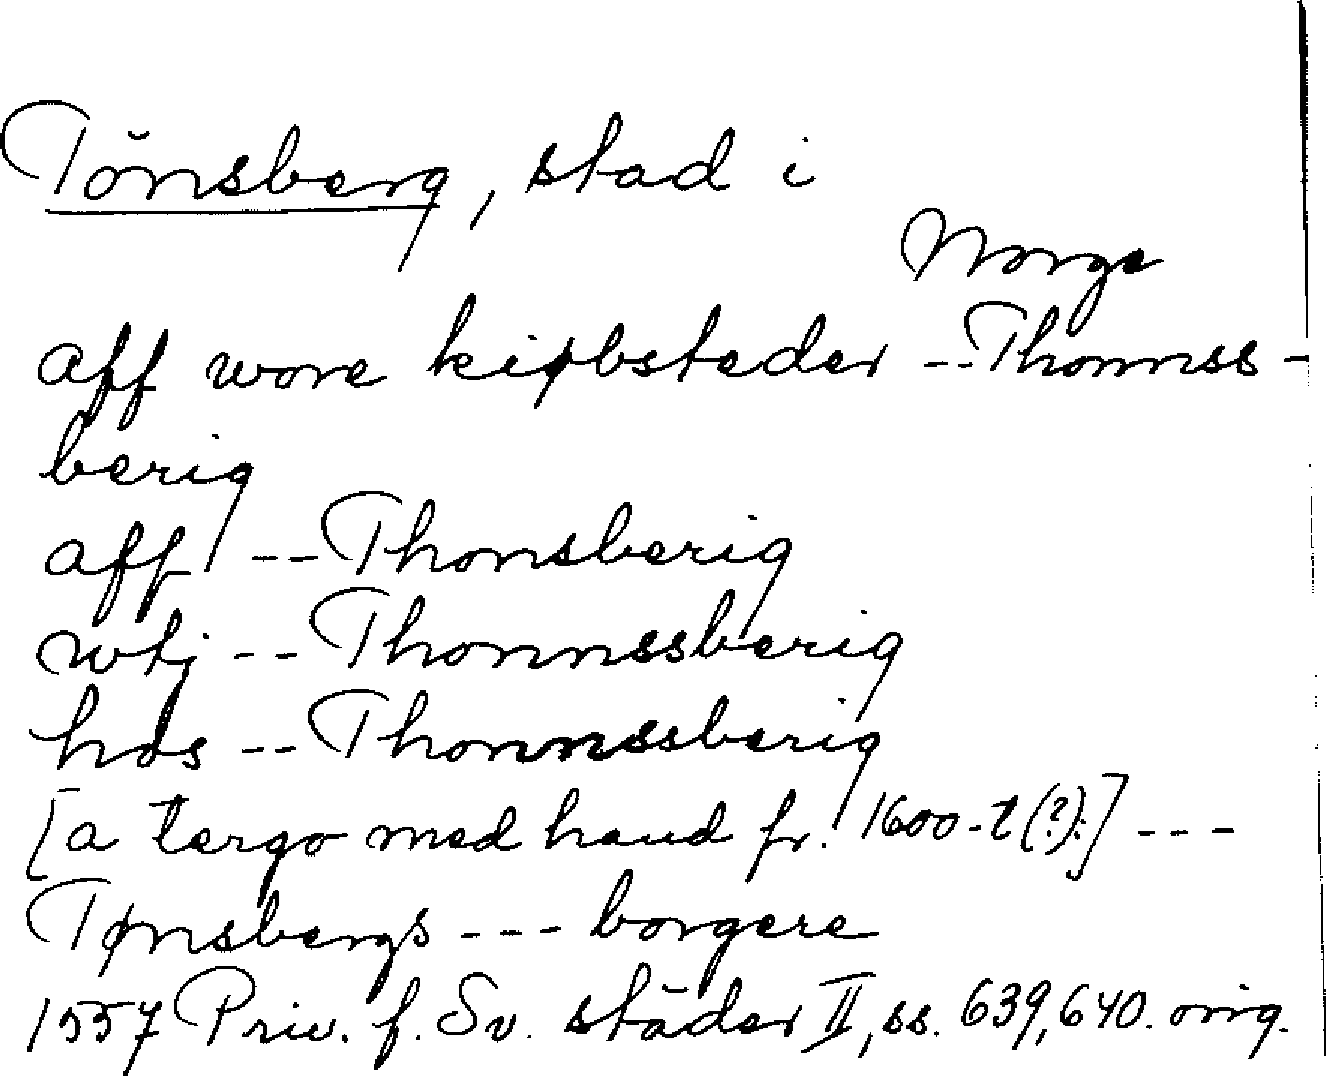 Tönsberg, stad i
Norge
aff wore kiøbsteder -- Thonnss-
berig
aff -- Thonsberig
wtj -- Thonnssberig
hos -- Thonnssberig
[a tergo med hand fr. 1600-t(?):] ---
Tønsbergs --- borgere
1557 Priv. f. Sv. städer II, ss. 639, 640. orig.